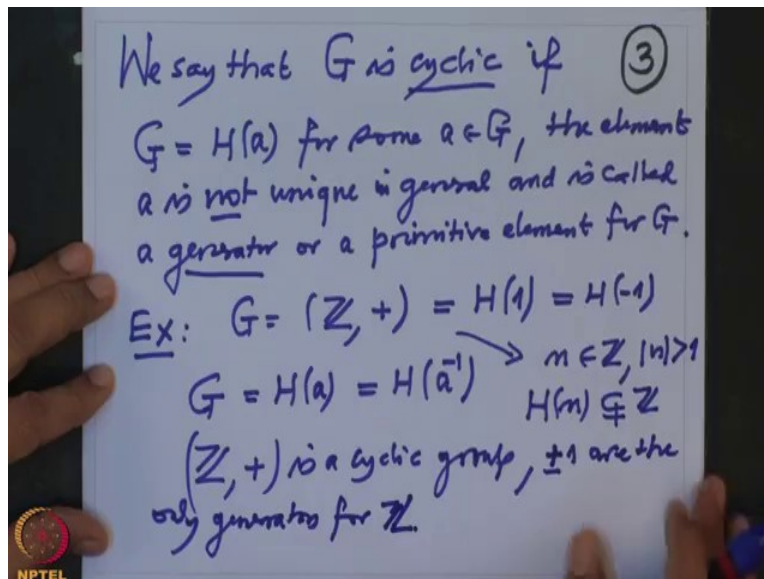 We say that G is cyclic if ③
G = H(a) for some a ∈ G, the elements
a is not unique in general and is called
a generator or a primitive element for G.
Ex: G = (ℤ, +) = H(1) = H(-1)
→ n ∈ ℤ, |n|>1
G = H(a) = H(a⁻¹) H(n) ⊊ ℤ
(ℤ, +) is a cyclic group, ±1 are the
only generators for ℤ.
NPTEL